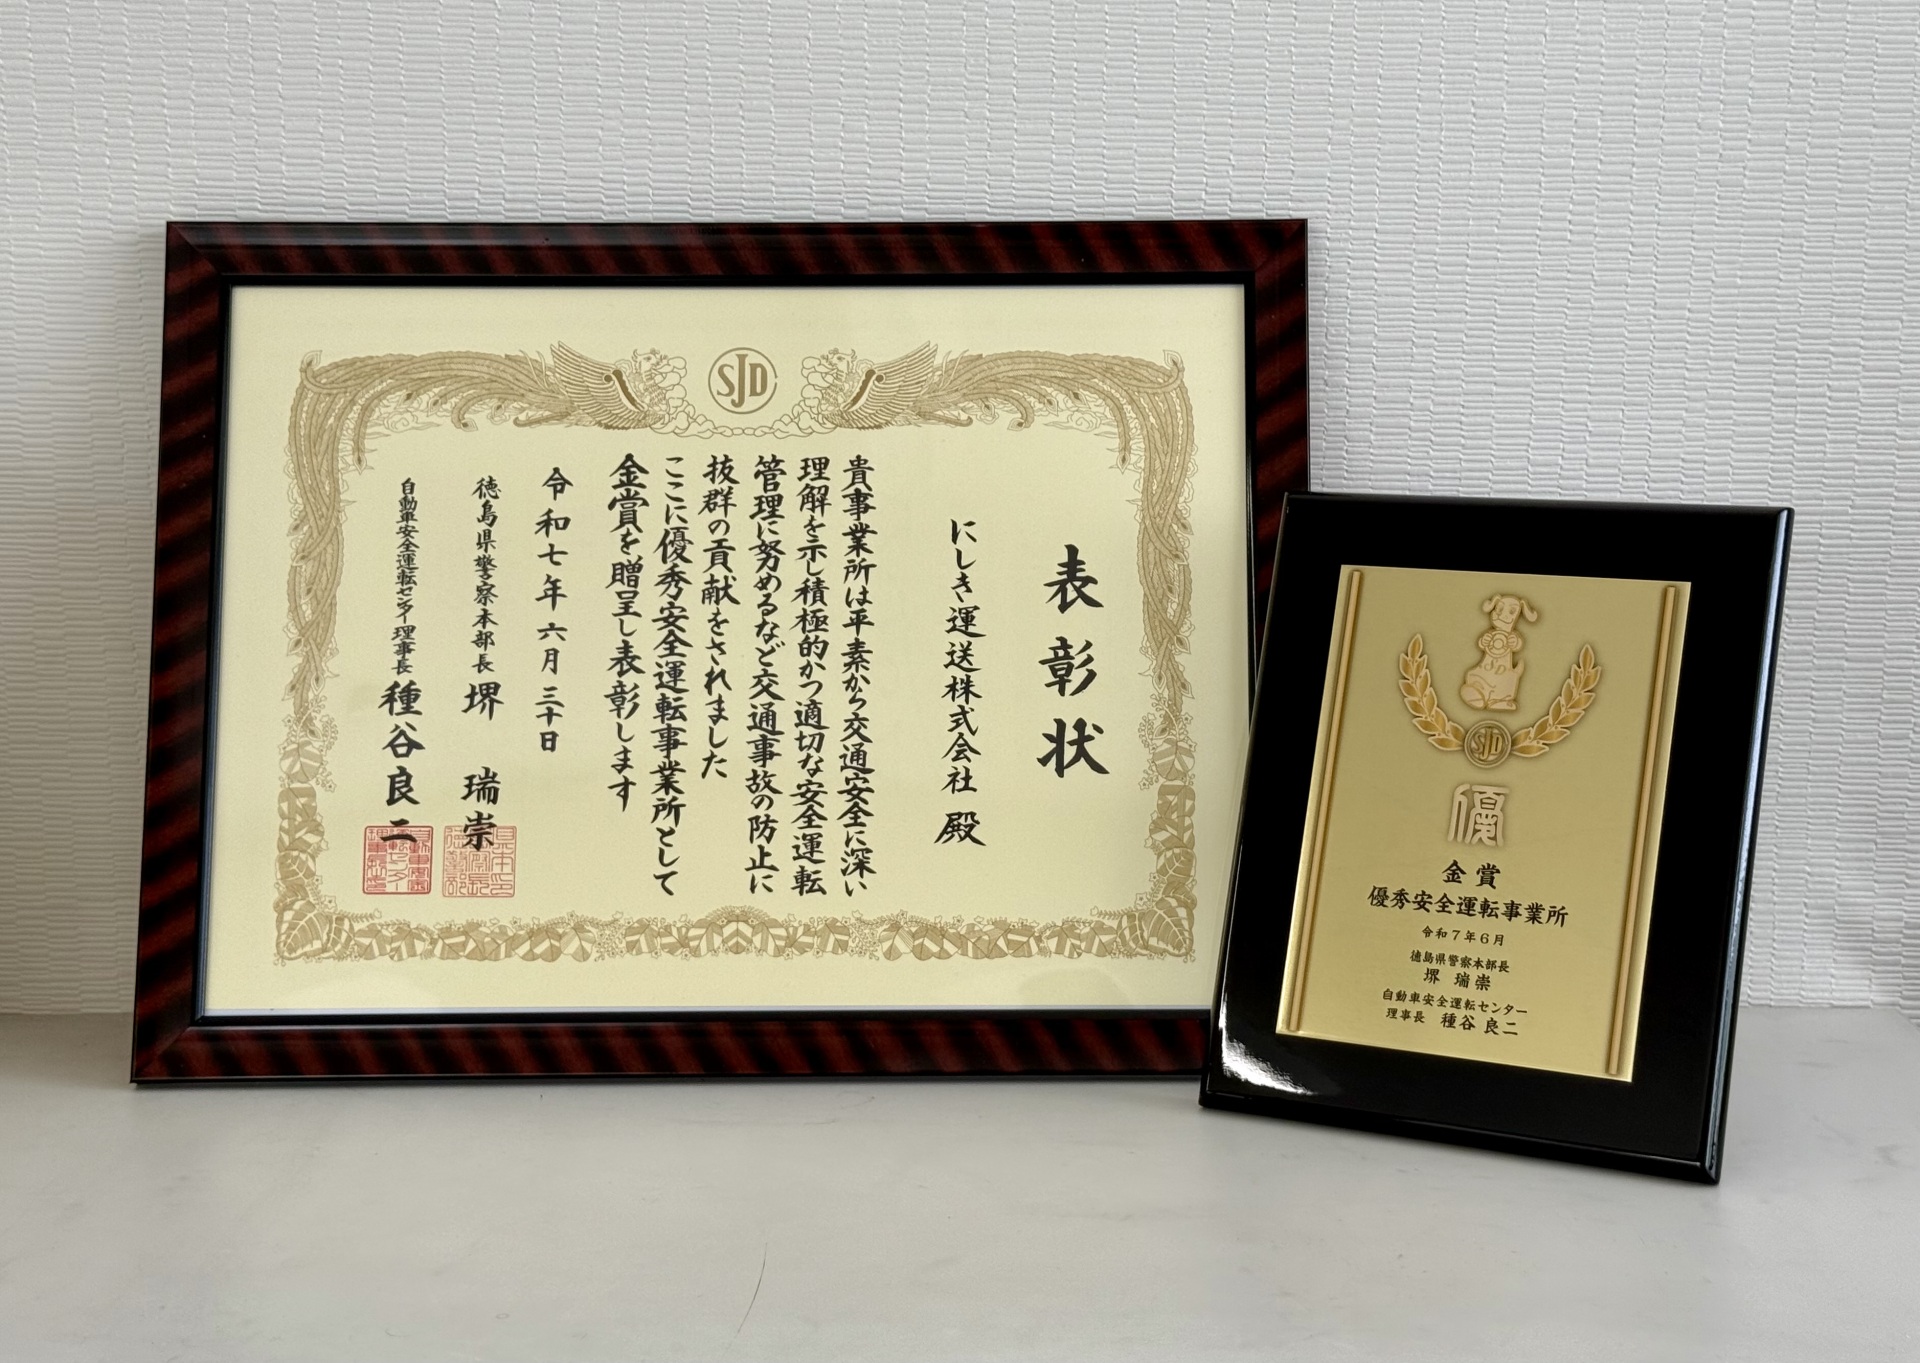 SJD
表彰状
にしき運送株式会社 殿
貴事業所は平素から交通安全に深い
理解を示し積極的かつ適切な安全運転
管理に努めるなど交通事故の防止に
抜群の貢献をされました
ここに優秀安全運転事業所として
金賞を贈呈し表彰します
令和七年六月三十日
徳島県警察本部長 堺 瑞崇
自動車安全運転センター理事長 種谷良二
SJD
優
金賞
優秀安全運転事業所
令和7年6月
徳島県警察本部長
堺 瑞崇
自動車安全運転センター
理事長 種谷良二